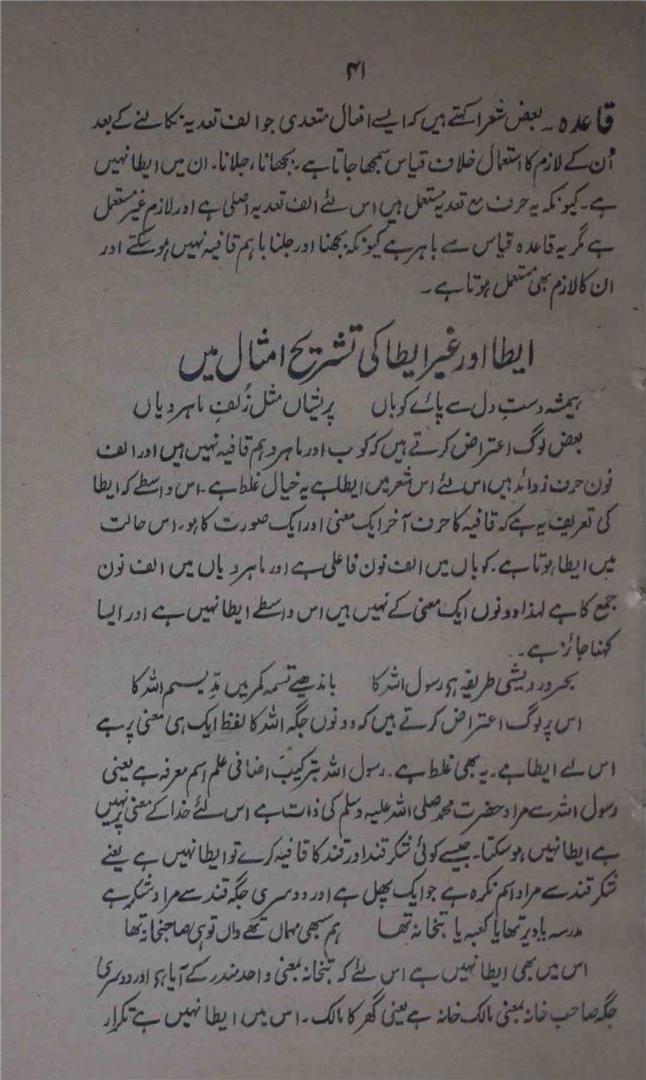 ۴۱
قاعدہ ۔ بعض شعرا کہتے ہیں کہ ایسے افعال متعدی جو الف تعدیہ نکالنے کے بعد
اُن کے لازم کا استعمال خلاف قیاس سمجھا جاتا ہے۔ بجھانا، جلانا۔ ان میں ایطا نہیں
ہے۔ کیونکہ یہ حرف مع تعدیہ مستعمل ہیں اس لئے الف تعدیہ اصلی ہے اور لازم غیر مستعمل
ہے مگر یہ قاعدہ قیاس سے باہر ہے کیونکہ بجھنا اور جلنا باہم قافیہ نہیں ہو سکتے اور
ان کا لازم بھی مستعمل ہوتا ہے۔
ایطا اور غیر ایطا کی تشریح امثال میں
ہمیشہ دست دل سے پائے کوباں پریشاں مثل زُلف ماہر ویاں
بعض لوگ اعتراض کرتے ہیں کہ کوب اور ماہر و ہم قافیہ نہیں ہیں اور الف
نون حرف زوائد ہیں اس لئے اس شعر میں ایطا ہے یہ خیال غلط ہے۔ اس واسطے کہ ایطا
کی تعریف یہ ہے کہ قافیہ کا حرف آخر ایک معنی اور ایک صورت کا ہو۔ اس حالت
میں ایطا ہوتا ہے۔ کوباں میں الف نون فاعلی ہے اور ماہر ویاں میں الف نون
جمع کا ہے لہذا دونوں ایک معنی کے نہیں ہیں اس واسطے ایطا نہیں ہے اور ایسا
کہنا جائز ہے۔
درویشی طریقہ ہو رسول اللہ کا باندھیے تسمہ کمر میں بسم اللہ کا
اس پر لوگ اعتراض کرتے ہیں کہ دونوں جگہ اللہ کا لفظ ایک ہی معنی پر ہے
اس لیے ایطا ہے۔ یہ بھی غلط ہے۔ رسول اللہ بترکیب اضافی علم اسم معرفہ ہے یعنی
رسول اللہ سے مراد حضرت محمد صلی اللہ علیہ وسلم کی ذات ہے اس لئے خدا کے معنی پر نہیں
ہے ایطا نہیں ہو سکتا۔ جیسے کوئی شکر قند اور قند کا قافیہ کرے تو ایطا نہیں ہے یعنے
شکر قند سے مراد اسم نکرہ ہے جو ایک پھل ہے اور دوسری جگہ قند سے مراد شکر ہے
مدرسہ یا دیر تھا یا کعبہ یا بتخانہ تھا ہم سبھی مہماں تھے واں تو ہی صاحبخانہ تھا
اس میں بھی ایطا نہیں ہے اس لئے کہ بتخانہ بمعنی واحد مندر کے آیا ہے اور دوسری
جگہ صاحب خانہ بمعنی مالک خانہ ہے یعنی گھر کا مالک۔ اس میں ایطا نہیں ہے تکرار